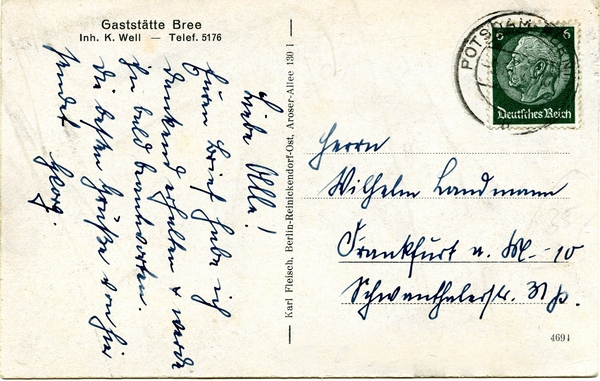 Gaststätte Bree
Inh. K. Well — Telef. 5176
Liebe Alle!
Euren Brief habe ich
dankend erhalten & werde
ihn bald beantworten.
Die besten Grüße von hier
sendet Georg.
Karl Fleisch, Berlin-Reinickendorf-Ost, Aroser-Allee 130 I
POTSDAM
6 6
Deutsches Reich
Herrn
Wilhelm Landmann
Frankfurt a. M. - 10
Schwanthalerstr. 31 p.
4691